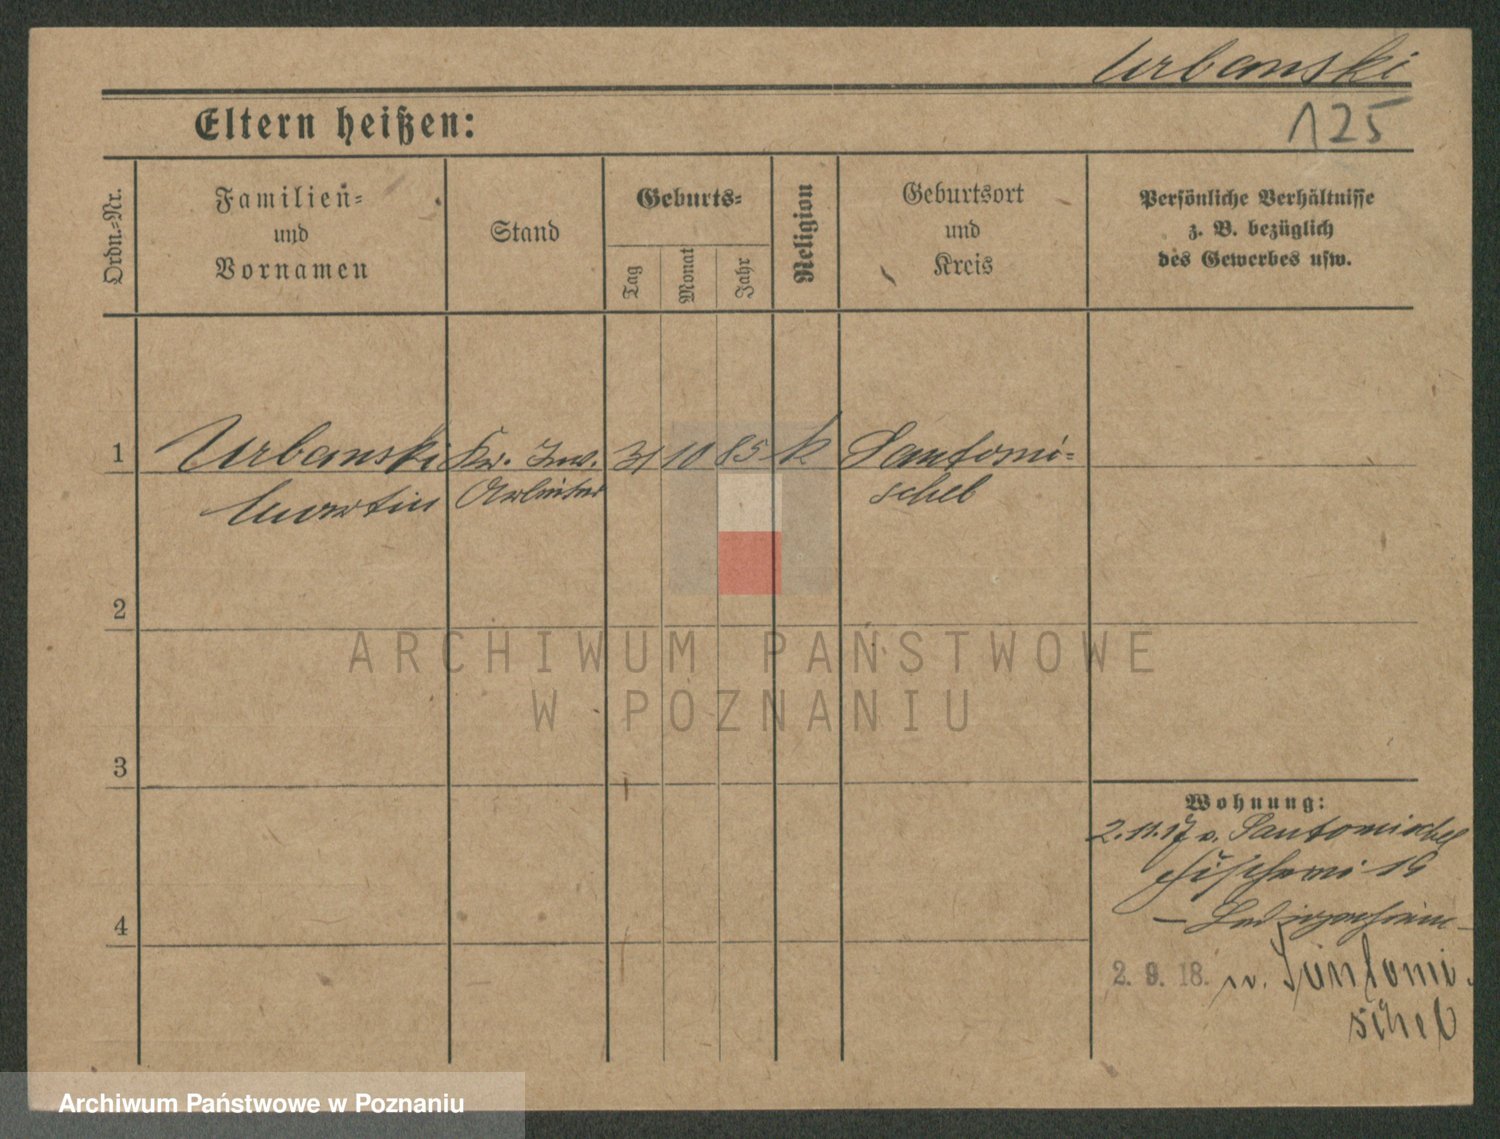 Urbanski
125
Eltern heißen:
Ordn.-Nr.
Familien-
und
Vornamen
Stand
Geburts-
Tag
Monat
Jahr
Religion
Geburtsort
und
Kreis
Persönliche Verhältnisse
z. B. bezüglich
des Gewerbes usw.
1 Urbanski Kr. Inv. 31 10 85 k Santomi-
Martin Arbeiter schel
2
3
4
Wohnung:
2.11.17 v. Santomischel
Fischerei 19
2. 9. 18. n. Santomi-
schel
ARCHIWUM PAŃSTWOWE
W POZNANIU
Archiwum Państwowe w Poznaniu